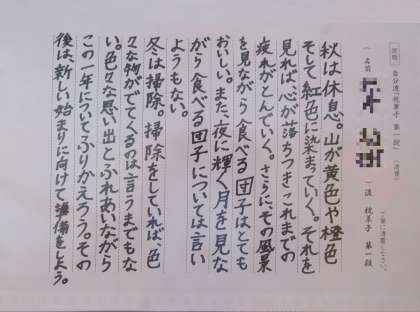 課題 自分流「枕草子 第一段」(清書)
丁寧に清書しなさい。
(名前
)流 枕草子 第一段
秋は休息。山が黄色や橙色
そして紅色に染まっていく。それを
見れば心が落ちつきこれまでの
疲れがとんでいく。さらに、その風景
を見ながら食べる団子はとても
おいしい。また、夜に輝く月を見な
がら食べる団子については言い
ようもない。
冬は掃除。掃除をしていれば、色
々な物がでてくるのは言うまでもな
い。色々な思い出とふれあいながら
この一年についてふりかえろう。その
後は、新しい始まりに向けて準備をしよう。